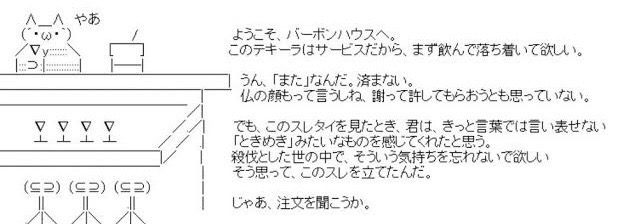 やあ
(´・ω・`)
ようこそ、バーボンハウスへ。
このテキーラはサービスだから、まず飲んで落ち着いて欲しい。
うん、「また」なんだ。済まない。
仏の顔もって言うしね、謝って許してもらおうとも思っていない。
でも、このスレタイを見たとき、君は、きっと言葉では言い表せない
「ときめき」みたいなものを感じてくれたと思う。
殺伐とした世の中で、そういう気持ちを忘れないで欲しい
そう思って、このスレを立てたんだ。
じゃあ、注文を聞こうか。